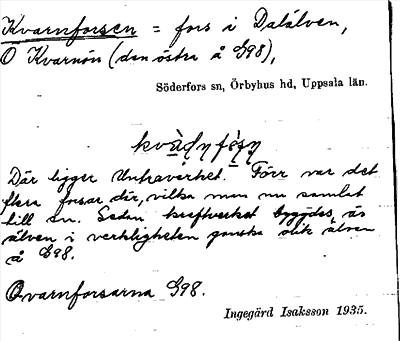 Kvarnforsen = fors i Dalälven,
O Kvarnön (den östra å G98),
Söderfors sn, Örbyhus hd, Uppsala län.
Där ligger Untraverket. Förr var det
flera forsar där, vilka man nu samlat
till en. Sedan kraftverket byggdes, är
älven i verkligheten ganska olik älven
å G98.
Qvarnforsarna G98.
Ingegärd Isaksson 1935.